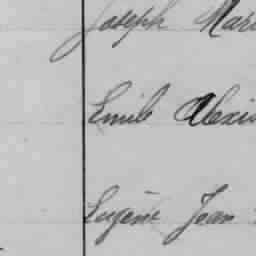 Joseph Mari
Emile Alexis
Eugène Jean